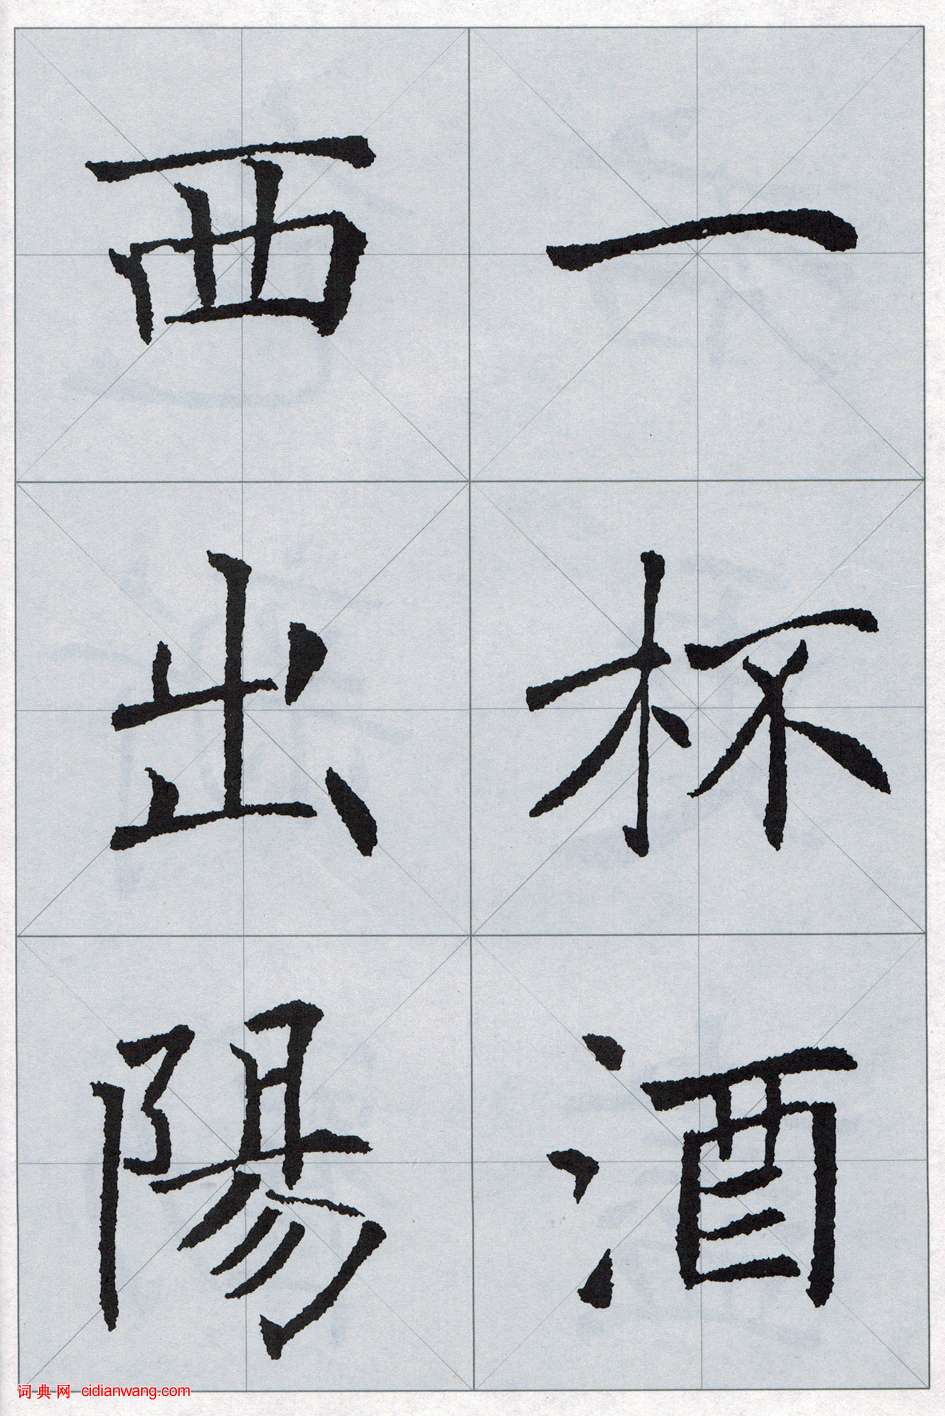 一杯酒
西出陽
词典网 cidianwang.com